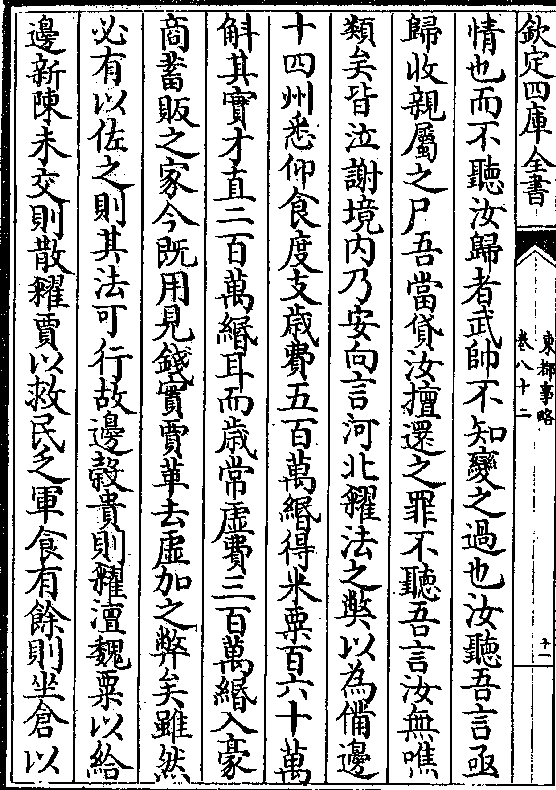 欽定四庫全書
東都事略
卷八十二
十一
情也而不聽汝歸者武帥不知變之過也汝聽吾言亟
歸收親屬之尸吾當貸汝擅還之罪不聽吾言汝無噍
類矣皆泣謝境内乃安向言河北糴法之弊以為備邊
十四州悉仰食度支歳費五百萬緡得米粟百六十萬
斛其實才直二百萬緡耳而歳常虛費三百萬緡入豪
商蓄販之家今既用見錢實賈革去虛加之弊矣雖然
必有以佐之則其法可行故邊榖貴則糴澶魏粟以給
邊新陳未交則散糴賈以救民乏軍食有餘則坐倉以